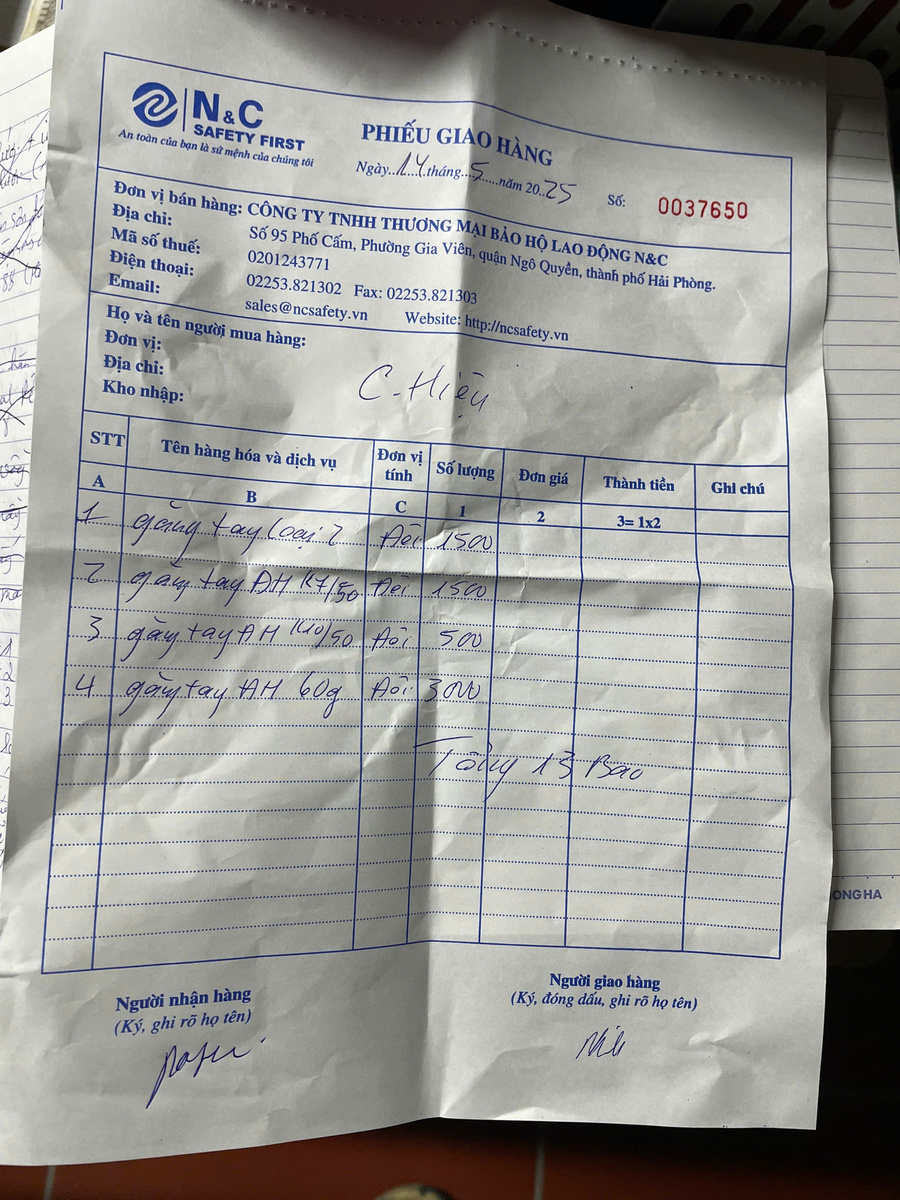 N&C
SAFETY FIRST
An toàn của bạn là sứ mệnh của chúng tôi
PHIẾU GIAO HÀNG
Ngày..14.tháng..5.....năm 20..25
Số: 0037650
Đơn vị bán hàng: CÔNG TY TNHH THƯƠNG MẠI BẢO HỘ LAO ĐỘNG N&C
Địa chỉ: Số 95 Phố Cấm, Phường Gia Viên, quận Ngô Quyền, thành phố Hải Phòng.
Mã số thuế: 0201243771
Điện thoại: 02253.821302 Fax: 02253.821303
Email: sales@ncsafety.vn Website: http://ncsafety.vn
Họ và tên người mua hàng:
Đơn vị:
Địa chỉ: C. Hiện
Kho nhập:
STT Tên hàng hóa và dịch vụ Đơn vị tính Số lượng Đơn giá Thành tiền Ghi chú
A B C 1 2 3= 1x2
1 găng tay loại 2 Đôi 1500
2 găng tay AH K7/50 Đôi 1500
3 găng tay AH K10/50 Đôi 500
4 găng tay AH 60g Đôi 3000
Tổng 13 Bao
Người nhận hàng
(Ký, ghi rõ họ tên)
Người giao hàng
(Ký, đóng dấu, ghi rõ họ tên)
ONG HA